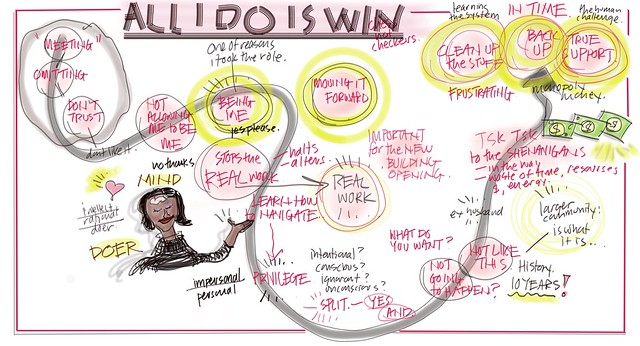 ALL I DO IS WIN
"MEETING"
OMITTING
DON'T
TRUST
don't like it.
NOT
ALLOWING
ME TO BE
ME
no thanks
One of reasons
I took the role.
BEING
ME
yes please.
MOVING IT
FORWARD
chess
not
checkers.
learning
the system
CLEAN UP
the STUFF
FRUSTRATING
IN TIME.
BACK
UP
the human
challenge.
TRUE
SUPPORT
monopoly
money.
STOPS the
REAL WORK
halts
aliens.
REAL
WORK
IMPORTANT
for the NEW
BUILDING
OPENING.
TSK TSK
to the SHENANIGANS
- in the way
- waste of time, resources
& energy.
MIND
intellect
rational
doer
DOER
LEARN HOW
to NAVIGATE
impersonal
personal
PRIVILEGE
intentional?
conscious?
ignorant?
unconscious?
- SPLIT - YES
AND.
WHAT DO
YOU WANT?
ex husband
NOT LIKE
THIS
NOT
GOING
to HAPPEN?
larger
community:
is what
it is....
History.
10 YEARS!